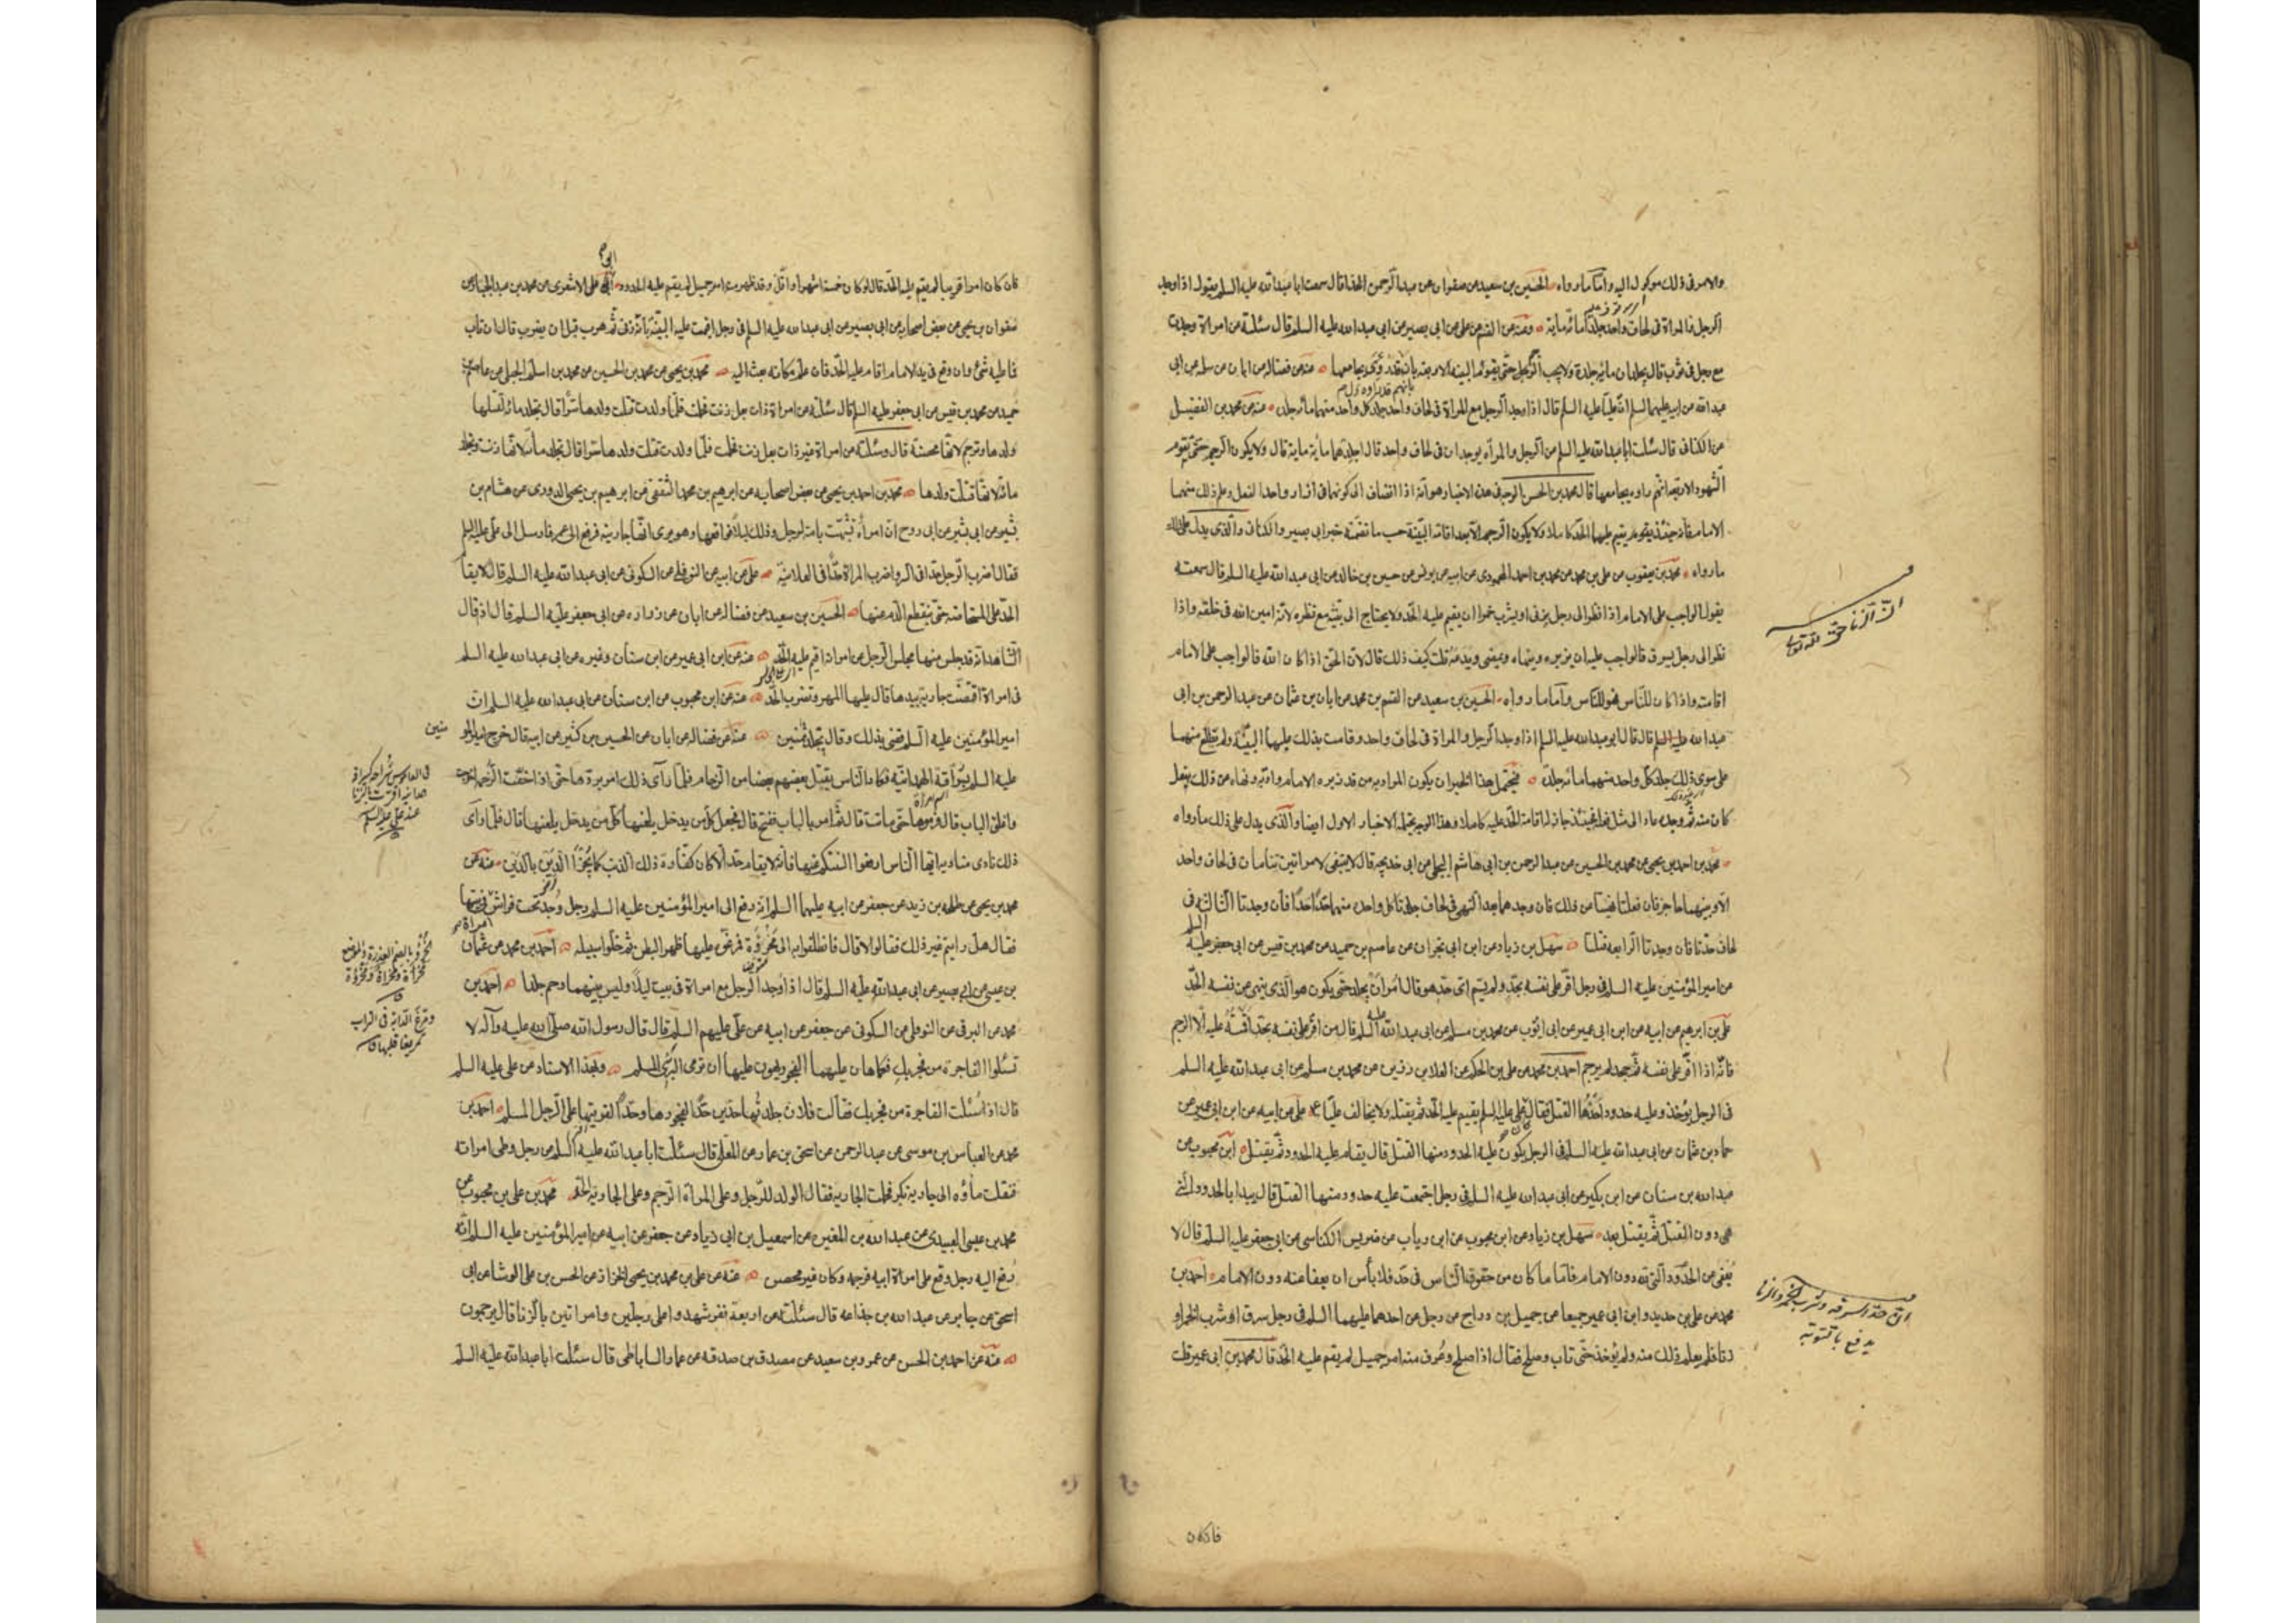 والامر فى ذلك موكول اليه واما ما رواه الحسين بن سعيد عن صفوان عن عبد الرحمن الحذا قال سمعت ابا عبد الله عليه السلم يقول اذا وجد
الرجل والمراة فى لحاف واحد جلدا مائة ماية وعنه عن القسم عن على عن ابى بصير عن ابى عبد الله عليه السلم قال سئلته عن امراة وجدت
مع رجل فى ثوب قال يجلدان مائة جلدة ولا يجب الرجم حتى يقوم البينة الاربعة بانه قد رؤى يجامعها عنه عن فضالة عن ابان عن سلمة عن ابى
عبد الله عن ابيه عليهما السلم ان عليا عليه السلم قال اذا وجد الرجل مع المراة فى لحاف واحد جلد كل واحد منهما مائة جلدة عنه عن محمد بن الفضيل
عن الكنانى قال سئلت ابا عبد الله عليه السلم عن الرجل والمرأة يوجدان فى لحاف واحد قال اجلدهما مأية ماية قال ولا يكون الرجم حتى تقوم
الشهود الاربعة انهم راوه يجامعها قال محمد بن الحسن الوجه فى هذه الاخبار هو انه اذا انضاف الى كونهما فى ازار واحد الفعل وعلم ذلك منهما
الامام فانه حينئذ يقيم عليهما الحد كاملا ولا يكون الرجم الا بعد اقامة البينة حسب ما تضمنه خبر ابى بصير والكنانى والذى يدل على ذلك
ما رواه محمد بن يعقوب عن على بن محمد عن محمد بن احمد المحمودى عن ابيه عن يونس عن حسين بن خالد عن ابى عبد الله عليه السلم قال سمعته
يقول الواجب على الامام اذا نظر الى رجل يزنى او يشرب خمرا ان يقيم عليه الحد ولا يحتاج الى بينة مع نظره لانه امين الله فى خلقه واذا
نظر الى رجل يسرق فالواجب عليه ان يزبره وينهاه ويمضى ويدعه قلت كيف ذلك قال لان الحق اذا كان الله فالواجب على الامام
اقامته واذا كان للناس فهو للناس واما ما رواه الحسين بن سعيد عن القسم بن محمد عن ابان بن عثمان عن عبد الرحمن بن ابى
عبد الله عليه السلم قال قال ابو عبد الله عليه السلم اذا وجد الرجل والمراة فى لحاف واحد وقامت بذلك عليهما البينة ولم يطلع منهما
على سوى ذلك جلد كل واحد منهما مائة جلدة فيحتمل هذا الخبر ان يكون المراد به من قد زبره الامام وادبه ونهاه عن ذلك بفعل
كان منه ثم وجده عاد الى مثل فعله فحينئذ جاز له اقامة الحد عليه كاملا وهذا الوجه تحتمله الاخبار الاول ايضا والذى يدل على ذلك ما رواه
محمد بن احمد بن يحيى عن محمد بن الحسين عن عبد الرحمن بن ابى هاشم البجلى عن ابى خديجه قال لا ينبغى لامراتين تنامان فى لحاف واحد
الا وبينهما حاجز فان فعلتا نهيتا عن ذلك فان وجدهما بعد النهى فى لحاف جلدتا كل واحدة منهما حدا حدا فان وجدتا الثالثة فى
لحاف حدتا فان وجدتا الرابعه قتلتا سهل بن زياد عن ابن ابى نجران عن عاصم بن حميد عن محمد بن قيس عن ابى جعفر عليه
عن امير المؤمنين عليه السلم فى رجل اقر على نفسه بحد ولم يسم اى حد هو قال امر ان يجلد حتى يكون هو الذى ينهى عن نفسه الحد
على بن ابرهيم عن ابيه عن ابن ابى عمير عن ابى ايوب عن محمد بن مسلم عن ابى عبد الله عليه السلم قال من اقر على نفسه بحد اقمته عليه الا الرجم
فانه اذا اقر على نفسه ثم جحد لم يرجم احمد بن محمد عن على بن الحكم عن العلا بن رزين عن محمد بن مسلم عن ابى عبد الله عليه السلم
فى الرجل يؤخذ وعليه حدود احدها القتل فقال كان على عليه السلم يقيم عليه الحد ثم يقتله ولا نخالف عليا ع على عن ابيه عن ابن ابى عمير عن
حماد بن عثمان عن ابى عبد الله عليه السلم فى الرجل يكون عليه الحدود منها القتل قال يقام عليه الحدود ثم يقتل ابن محبوب عن
عبد الله بن سنان عن ابن بكير عن ابى عبد الله عليه السلم فى رجل اجتمعت عليه حدود منها القتل قال يبدا بالحدود التى
هى دون القتل ثم يقتل بعد سهل بن زياد عن ابن محبوب عن ابن رياب عن ضريس الكناسى عن ابى جعفر عليه السلم قال لا
يعفى عن الحدود التى لله دون الامام فاما ما كان من حقوق الناس فى حد فلا بأس ان يعفا عنه دون الامام احمد بن
محمد عن على بن حديد وابن ابى عمير جميعا عن جميل بن دراج عن رجل عن احدهما عليهما السلم فى رجل سرق او شرب الخمر او
زنا فلم يعلم ذلك منه ولم يؤخذ حتى تاب وصلح فقال اذا صلح وعرف منه امر جميل لم يقم عليه الحد قال محمد بن ابى عمير قلت
ان الزنا حق الله تعالى
ان حد السرقه وشرب الخمر والزنا
يدفع بالتوبه
فان كان
فان كان امرا قريبا لم يقم عليه الحد قال لو كان خمسة اشهر او اقل وقد ظهر منه امر جميل لم يقم عليه الحدود ابو على الاشعرى عن محمد بن عبد الجبار عن
صفوان بن يحيى عن بعض اصحابه عن ابى بصير عن ابى عبد الله عليه السلم فى رجل اقيمت عليه البينة بانه زنى ثم هرب قبل ان يضرب قال ان تاب
فما عليه شئ وان وقع فى يد الامام اقام عليه الحد فان علم مكانه بعث اليه محمد بن يحيى عن محمد بن الحسين عن محمد بن اسلم الجبلى عن عاصم بن
حميد عن محمد بن قيس عن ابى جعفر عليه السلم قال سئلته عن امراة ذات بعل زنت فحملت فلما ولدت قتلت ولدها سرا قال تجلد مائة لقتلها
ولدها وترجم لانها محصنة قال وسئلته عن امراة غير ذات بعل زنت فحملت فلما ولدت قتلت ولدها سرا قال تجلد مأة لانها زنت وتجلد
مائة لانها قتلت ولدها محمد بن احمد بن يحيى عن بعض اصحابه عن ابرهيم بن محمد الثقفى عن ابرهيم بن يحيى الدورى عن هشام بن
بشير عن ابى بشير عن ابى روح ان امرأة تشبهت بامة لرجل وذلك ليلا فواقعها وهو يرى انها جاريته فرفع الى عمر فارسل الى على عليه السلم
فقال اضرب الرجل حدا فى السر واضرب المراة حدا فى العلانية على عن ابيه عن النوفلى عن السكونى عن ابى عبد الله عليه السلم قال لا يقام
الحد على المستحاضة حتى ينقطع الدم عنها الحسين بن سعيد عن فضالة عن ابان عن زراره عن ابى جعفر عليه السلم قال اذ قال
الشاهد انه قد جلس منها مجلس الرجل من امراته اقيم عليه الحد عنه عن ابن ابى عمير عن ابن سنان وغيره عن ابى عبد الله عليه السلم
فى امراة افتضت جارية بيدها قال عليها المهر وتضرب الحد عنه عن ابن محبوب عن ابن سنان عن ابى عبد الله عليه السلم ان
امير المؤمنين عليه السلم قضى بذلك وقال تجلد ثمنين عنه عن فضالة عن ابان عن الحسين بن كثير عن ابيه قال خرج امير المو
منين
عليه السلم بشراقة الهمدانية فكاد الناس يقتل بعضهم بعضا من الزحام فلما رآى ذلك امر بردها حتى اذا خفت الزحمة اخرجت
واغلق الباب قال فرموها حتى ماتت قال ثم امر بالباب ففتح قال فجعل كل من يدخل يلعنها قال فلما رآى
ذلك نادى مناديه ايها الناس ارفعوا السنتكم عنها فانه لا يقام حد الا كان كفارة ذلك الذنب كما يجزا الدين بالدين عنه عن
محمد بن يحيى عن طلحه بن زيد عن جعفر عن ابيه عليهما السلم انه رفع الى امير المؤمنين عليه السلم رجل وجد تحت فراش
فقال هل رايتم غير ذلك فقالوا لا قال فانطلقوا به الى مخرؤة فمرغوه عليها ظهرا لبطن ثم خلوا سبيله احمد بن محمد عن عثمان
بن عيسى عن ابى بصير عن ابى عبد الله عليه السلم قال اذا وجد الرجل مع امراة فى بيت ليلا وليس بينهما رحم جلدا احمد بن
محمد عن البرقى عن النوفلى عن السكونى عن جعفر عن ابيه عن على عليهم السلم قال قال رسول الله صلى الله عليه وآله لا
تسئلوا الفاجرة من فجر بك فكما هان عليها الفجور يهون عليها ان ترمى البرى المسلم وبهذا الاسناد عن على عليه السلم
قال اذا سئلت الفاجرة من فجر بك فقالت فلان جلدتها حدين حدا لفجورها وحدا لفريتها على الرجل المسلم احمد بن
محمد عن العباس بن موسى عن عبد الرحمن عن اسحق بن عمار عن المعلى قال سئلت ابا عبد الله عليه السلم عن رجل وطى امراته
فنقلت ماؤه الى جارية بكر فحملت الجارية فقال الولد للرجل وعلى المرأة الرجم وعلى الجارية الحد محمد بن على بن محبوب عن
محمد بن عيسى العبيدى عن عبد الله بن المغيرة عن اسمعيل بن ابى زياد عن جعفر عن ابيه عن امير المؤمنين عليه السلم انه
رفع اليه رجل وقع على امراة ابيه فرجمه وكان غير محصن عنه عن على بن محمد بن يحيى الخزاز عن الحسن بن على الوشا عن ابى
اسحق عن جابر عن عبد الله بن جذاعه قال سئلته عن اربعة نفر شهدوا على رجلين وامراتين بالزنا قال يرجمون
عنه عن احمد بن الحسن عن عمرو بن سعيد عن مصدق بن صدقه عن عمار الساباطى قال سئلت ابا عبد الله عليه السلم
فى القاموس شراحه كسراقة
همدانية اقرت بالزنا
عند على عليه السلم
الخرؤ بالضم العذرة والموضع
مخرأة ومخراة ومخرؤة
ق
ومرغ الدابة فى التراب
تمريغا قلبها ق